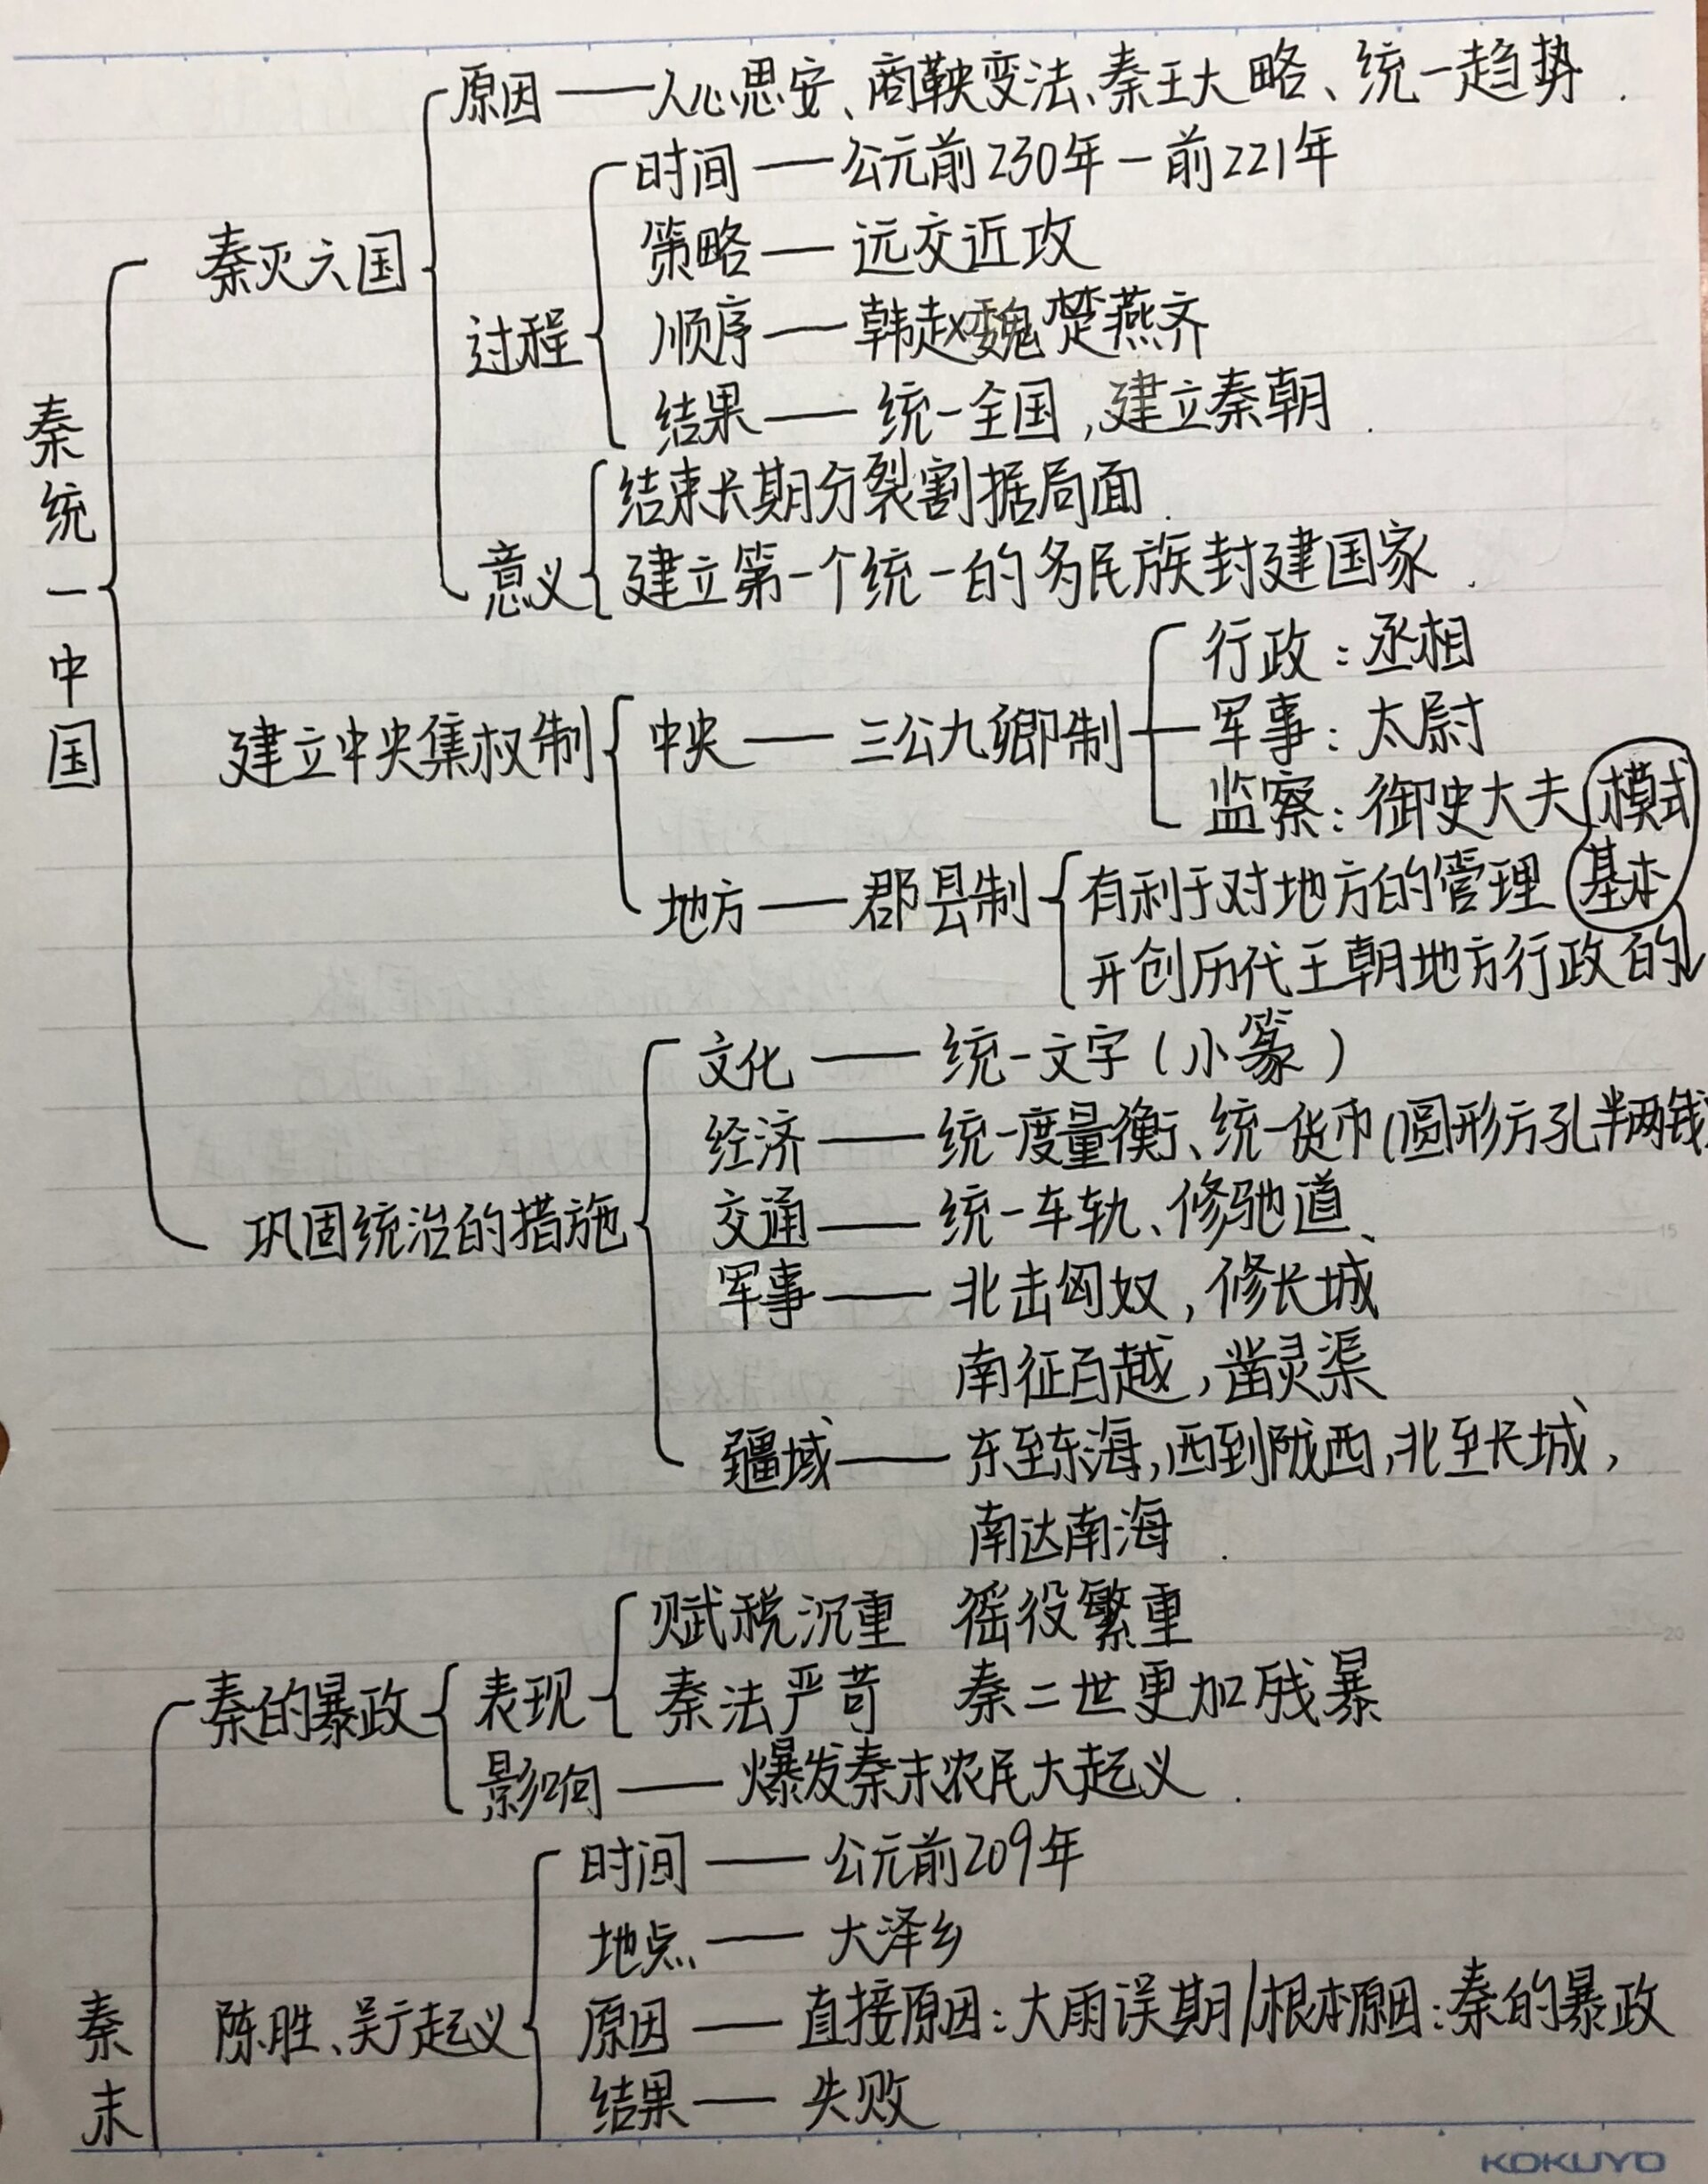 原因——人心思安、商鞅变法、秦王大略、统一趋势.
时间——公元前230年-前221年
策略——远交近攻
秦灭六国
顺序——韩赵魏楚燕齐
过程
结果——统一全国,建立秦朝.
结束长期分裂割据局面.
意义
建立第一个统一的多民族封建国家.
秦统一中国
行政:丞相
建立中央集权制
中央——三公九卿制
军事:太尉
监察:御史大夫
模式
地方——郡县制
有利于对地方的管理
基本
开创历代王朝地方行政的
文化——统一文字(小篆)
经济——统一度量衡、统一货币(圆形方孔半两钱)
巩固统治的措施
交通——统一车轨、修驰道、
军事——北击匈奴,修长城
南征百越,凿灵渠
疆域——东至东海,西到陇西,北至长城,
南达南海.
赋税沉重 徭役繁重
秦的暴政
表现
秦法严苛 秦二世更加残暴
影响——爆发秦末农民大起义.
时间——公元前209年
地点——大泽乡
秦末
陈胜、吴广起义
原因——直接原因:大雨误期/根本原因:秦的暴政
结果——失败
KOKUYO